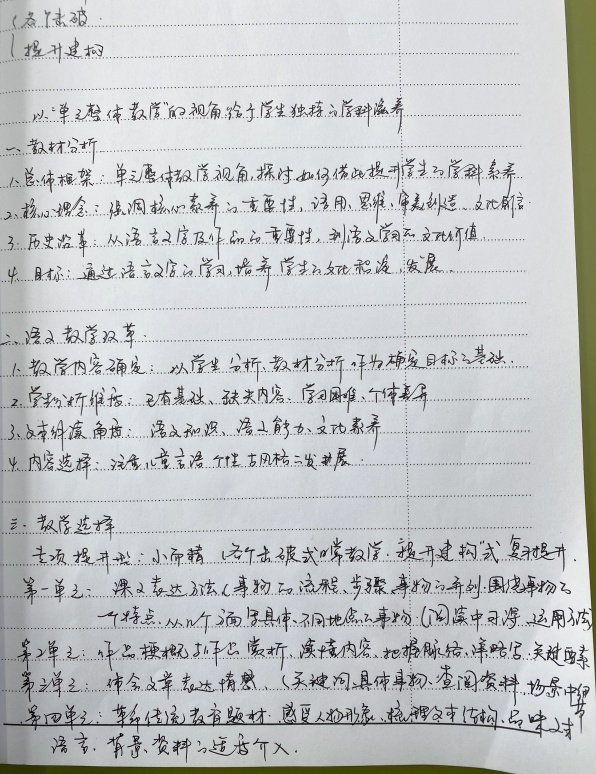 各个击破
提升建构
以“单元整体教学”的视角给予学生独特的学科滋养
一、教材分析
1. 总体框架：单元整体教学视角，探讨如何借此提升学生的学科素养
2. 核心理念：强调核心素养的重要性，语用、思维、审美创造、文化
3. 历史沿革：从语言文字及作品的重要性，到语文学习的文化价值.
4. 目标：通过语言文字的学习，培养学生的文化积淀、发展.
二、语文教学改革.
1. 教学内容确定：以学生分析、教材分析作为确定目标之基础.
2. 学情分析维度：已有基础、缺失内容、学习困难、个体差异
3. 文本解读角度：语文知识、语文能力、文化素养
4. 内容选择：注重儿童言语个性与风格之发展.
三、教学选择
专项提升型：小而精（各个击破式日常教学.“提升建构”式复习提升.
第一单元：课文表达方法（事物的流程、步骤、事物的系列.围绕事物的
一个特点，从几个方面写具体、不同地点的事物.（阅读中习得、运用方法
第2单元：作品梗概与作品赏析，读懂内容、把握脉络、详略写、关键要素
第三单元：体会文章表达情感.（关键词、具体事物、查阅资料、场景中细节
第四单元：革命传统教育题材.感受人物形象、梳理文本结构、品味文本
语言、背景、资料的适度介入.